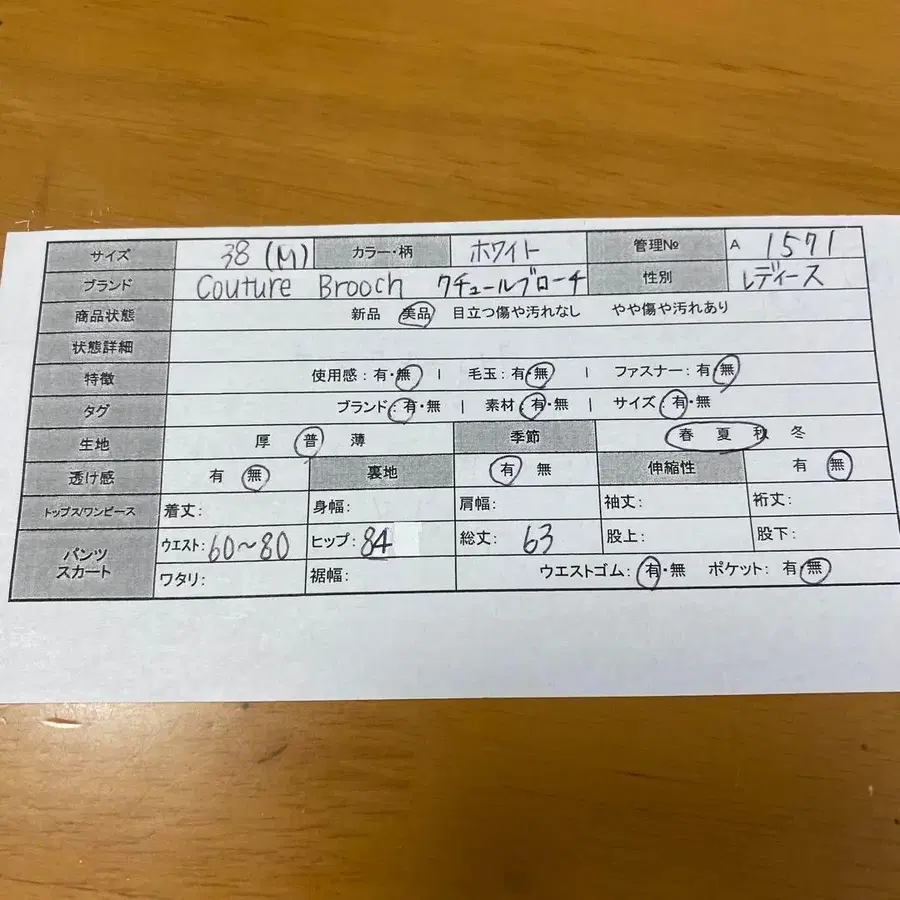 サイズ 38 (M) カラー・柄 ホワイト 管理№ A 1571
ブランド Couture Brooch クチュールブローチ 性別 レディース
商品状態 新品 美品 目立つ傷や汚れなし やや傷や汚れあり
状態詳細
特徴 使用感:有・無 | 毛玉:有・無 | ファスナー:有・無
タグ ブランド:有・無 | 素材:有・無 | サイズ:有・無
生地 厚 普 薄 季節 春 夏 秋 冬
透け感 有 無 裏地 有 無 伸縮性 有 無
トップス/ワンピース 着丈: 身幅: 肩幅: 袖丈: 裄丈:
パンツ スカート ウエスト:60~80 ヒップ:84 総丈:63 股上: 股下:
ワタリ: 裾幅: ウエストゴム:有・無 ポケット:有・無